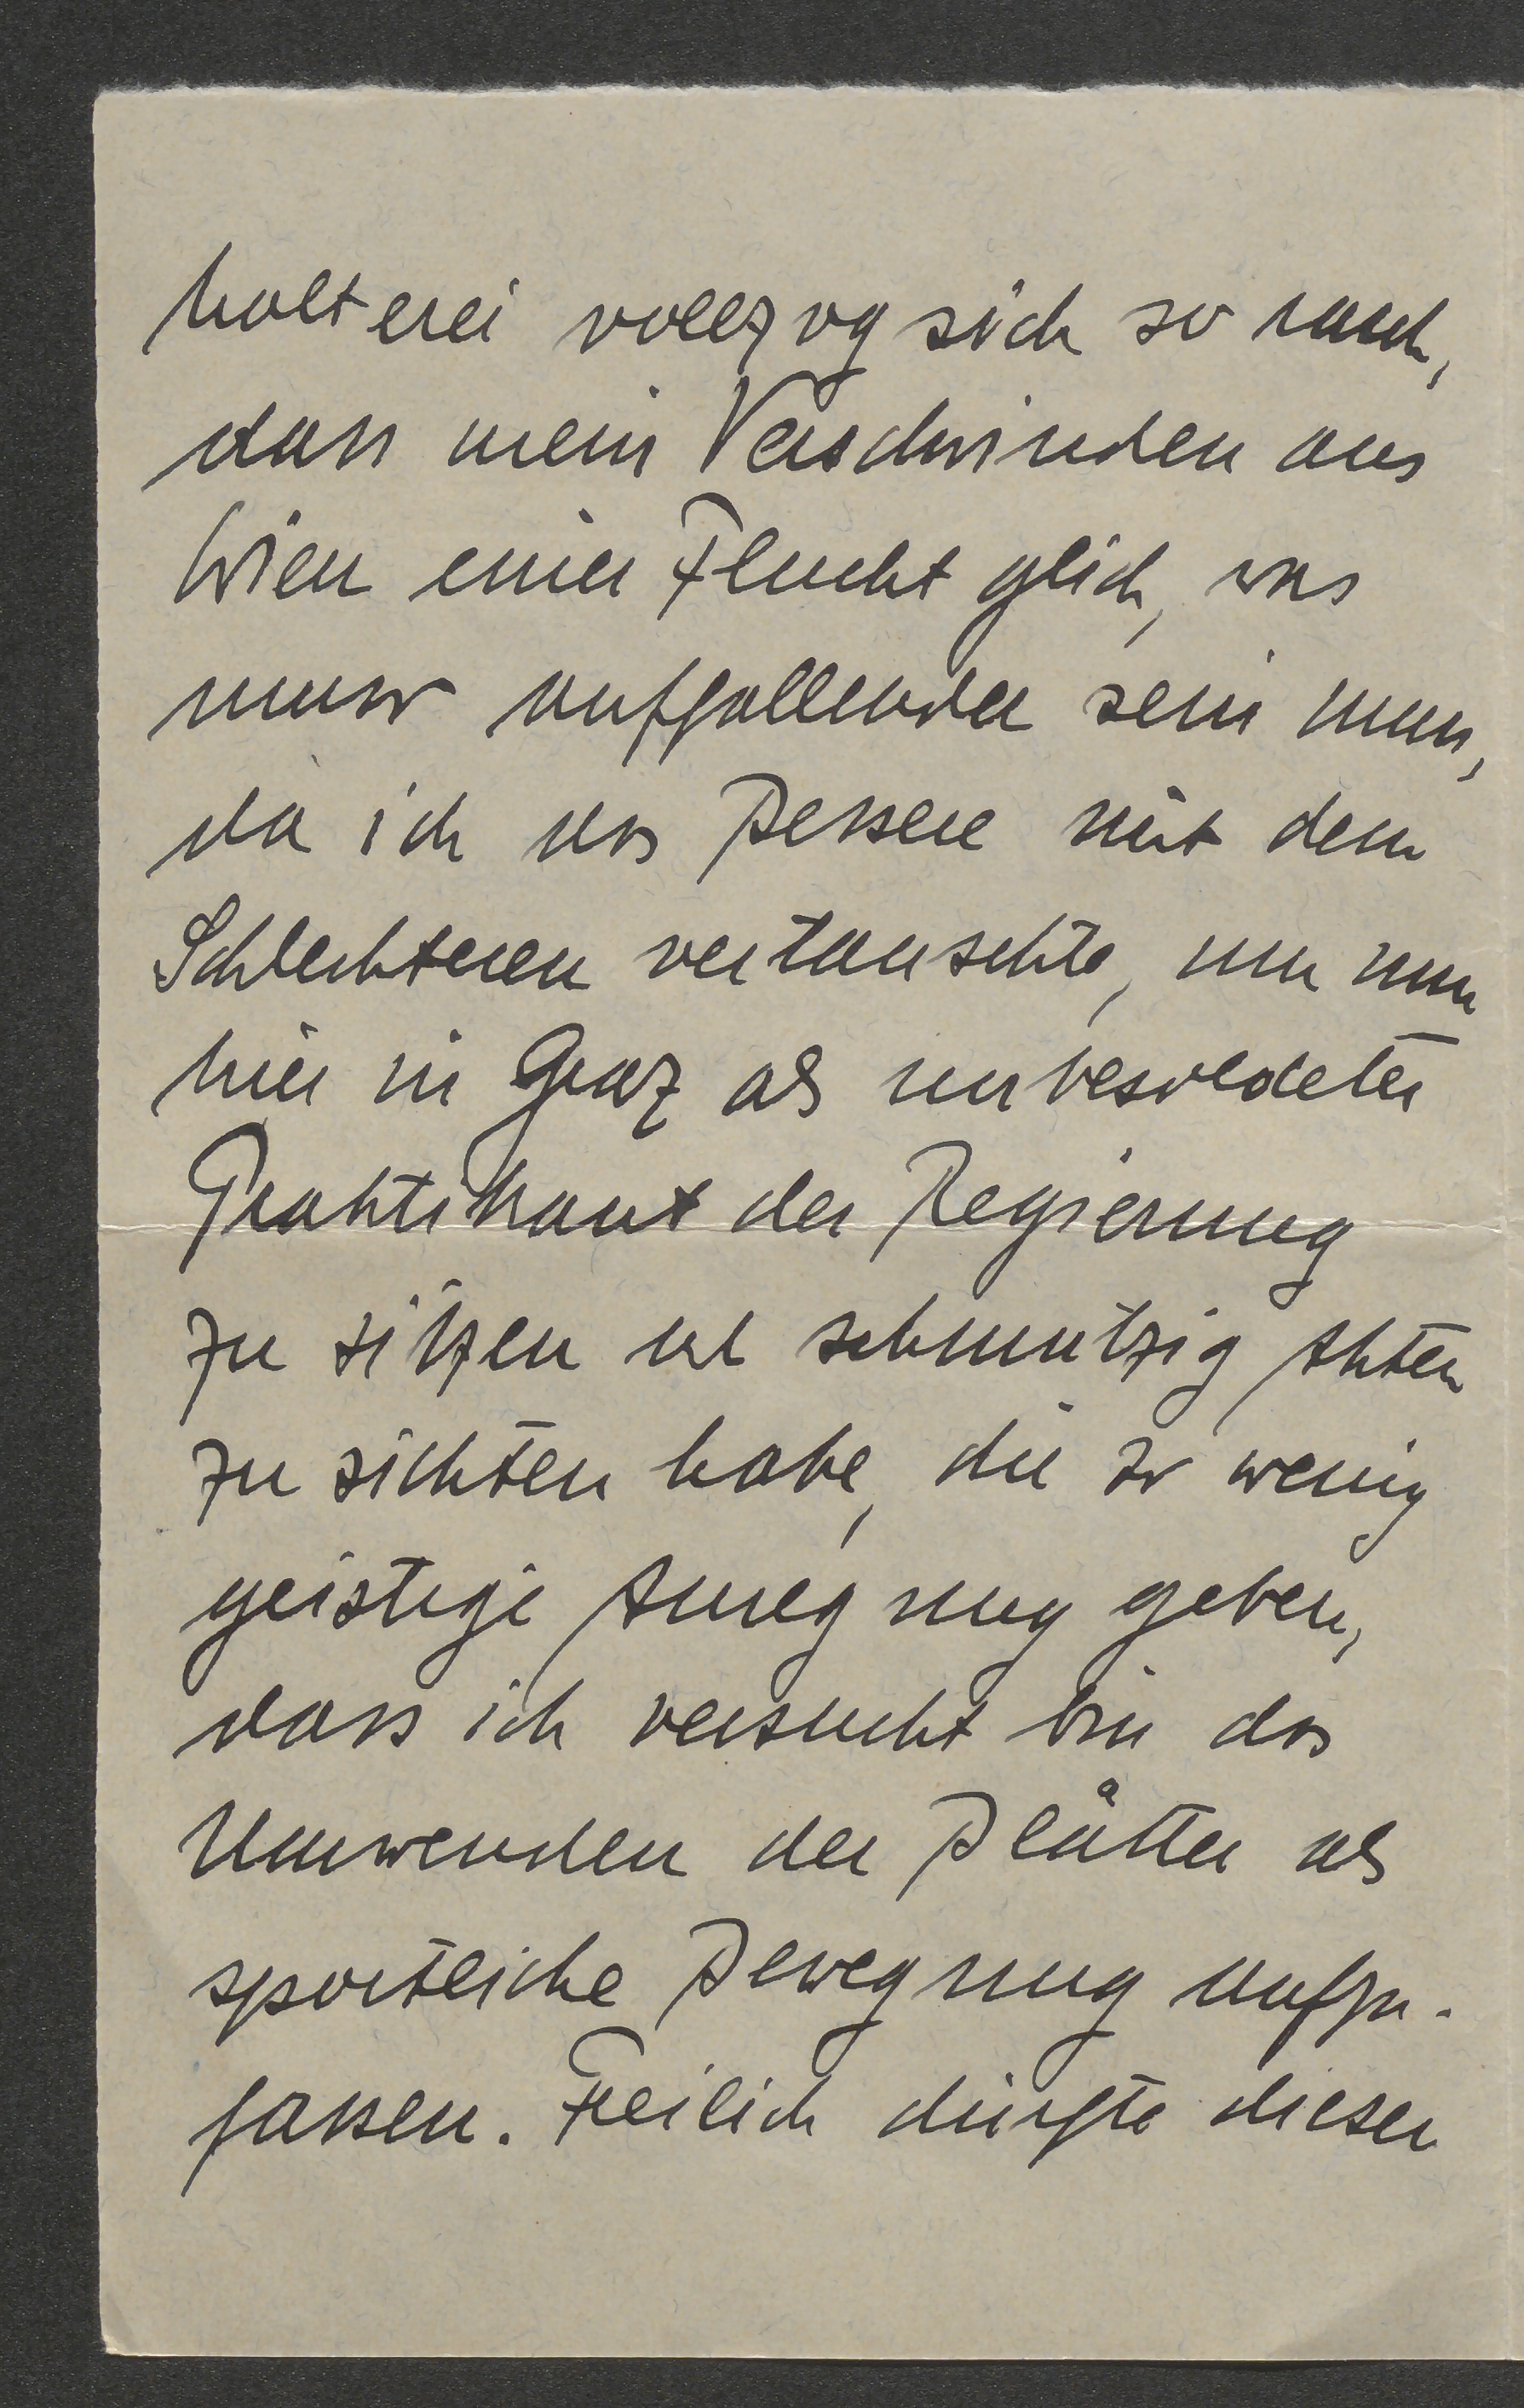 halterei vollzog sich so rasch,
dass mein Verschwinden aus
Wien einer Flucht glich, was
umso auffallender sein muss,
da ich das Bessere mit dem
Schlechteren vertauschte, um nun
hier in Graz als unbesoldeter
Praktikant der Regierung
zu sitzen und schmutzig Akten
zu sichten habe, die so wenig
geistige Anregung geben,
dass ich versucht bin das
Umwenden der Blätter als
sportliche Bewegung aufzu-
fassen. Freilich dürfte dieser